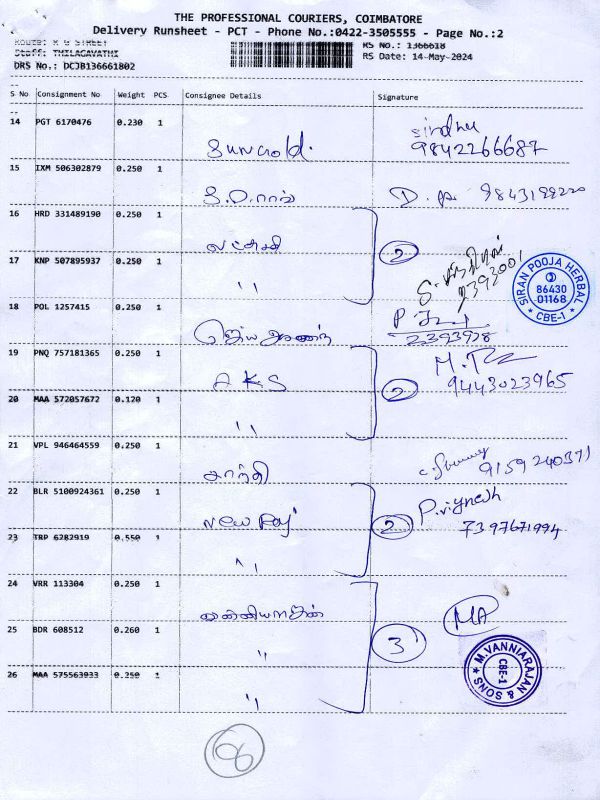 THE PROFESSIONAL COURIERS, COIMBATORE
Delivery Runsheet - PCT - Phone No.:0422-3505555 - Page No.:2
Route: K G STREET
Staff: THILAGAVATHI
RS No.: 1366618
DRS No.: DCJB136661802
RS Date: 14-May-2024
S No Consignment No Weight PCS Consignee Details Signature
14 PGT 6170476 0.230 1
Sungold. Sindhu
9842266687
15 IXM 506302879 0.250 1
D.
16 HRD 331489190 0.250 1
2
17 KNP 507895937 0.250 1
" 2392001
SIRAN POOJA HERBAL
86430
01168
* CBE-1 *
18 POL 1257415 0.250 1
2393928
19 PNQ 757181365 0.250 1
AKS 2 9443023965
20 MAA 572057672 0.120 1
"
21 VPL 946464559 0.250 1
சாந்தி 9159240371
22 BLR 5100924361 0.250 1
New Raj 2 P.vignesh
7397671994
23 TRP 6282919 0.550 1
"
24 VRR 113304 0.250 1
MA
25 BDR 608512 0.260 1
" 3
26 MAA 575563933 0.250 1
"
M.VANNIARAJAN & SONS
CBE-1